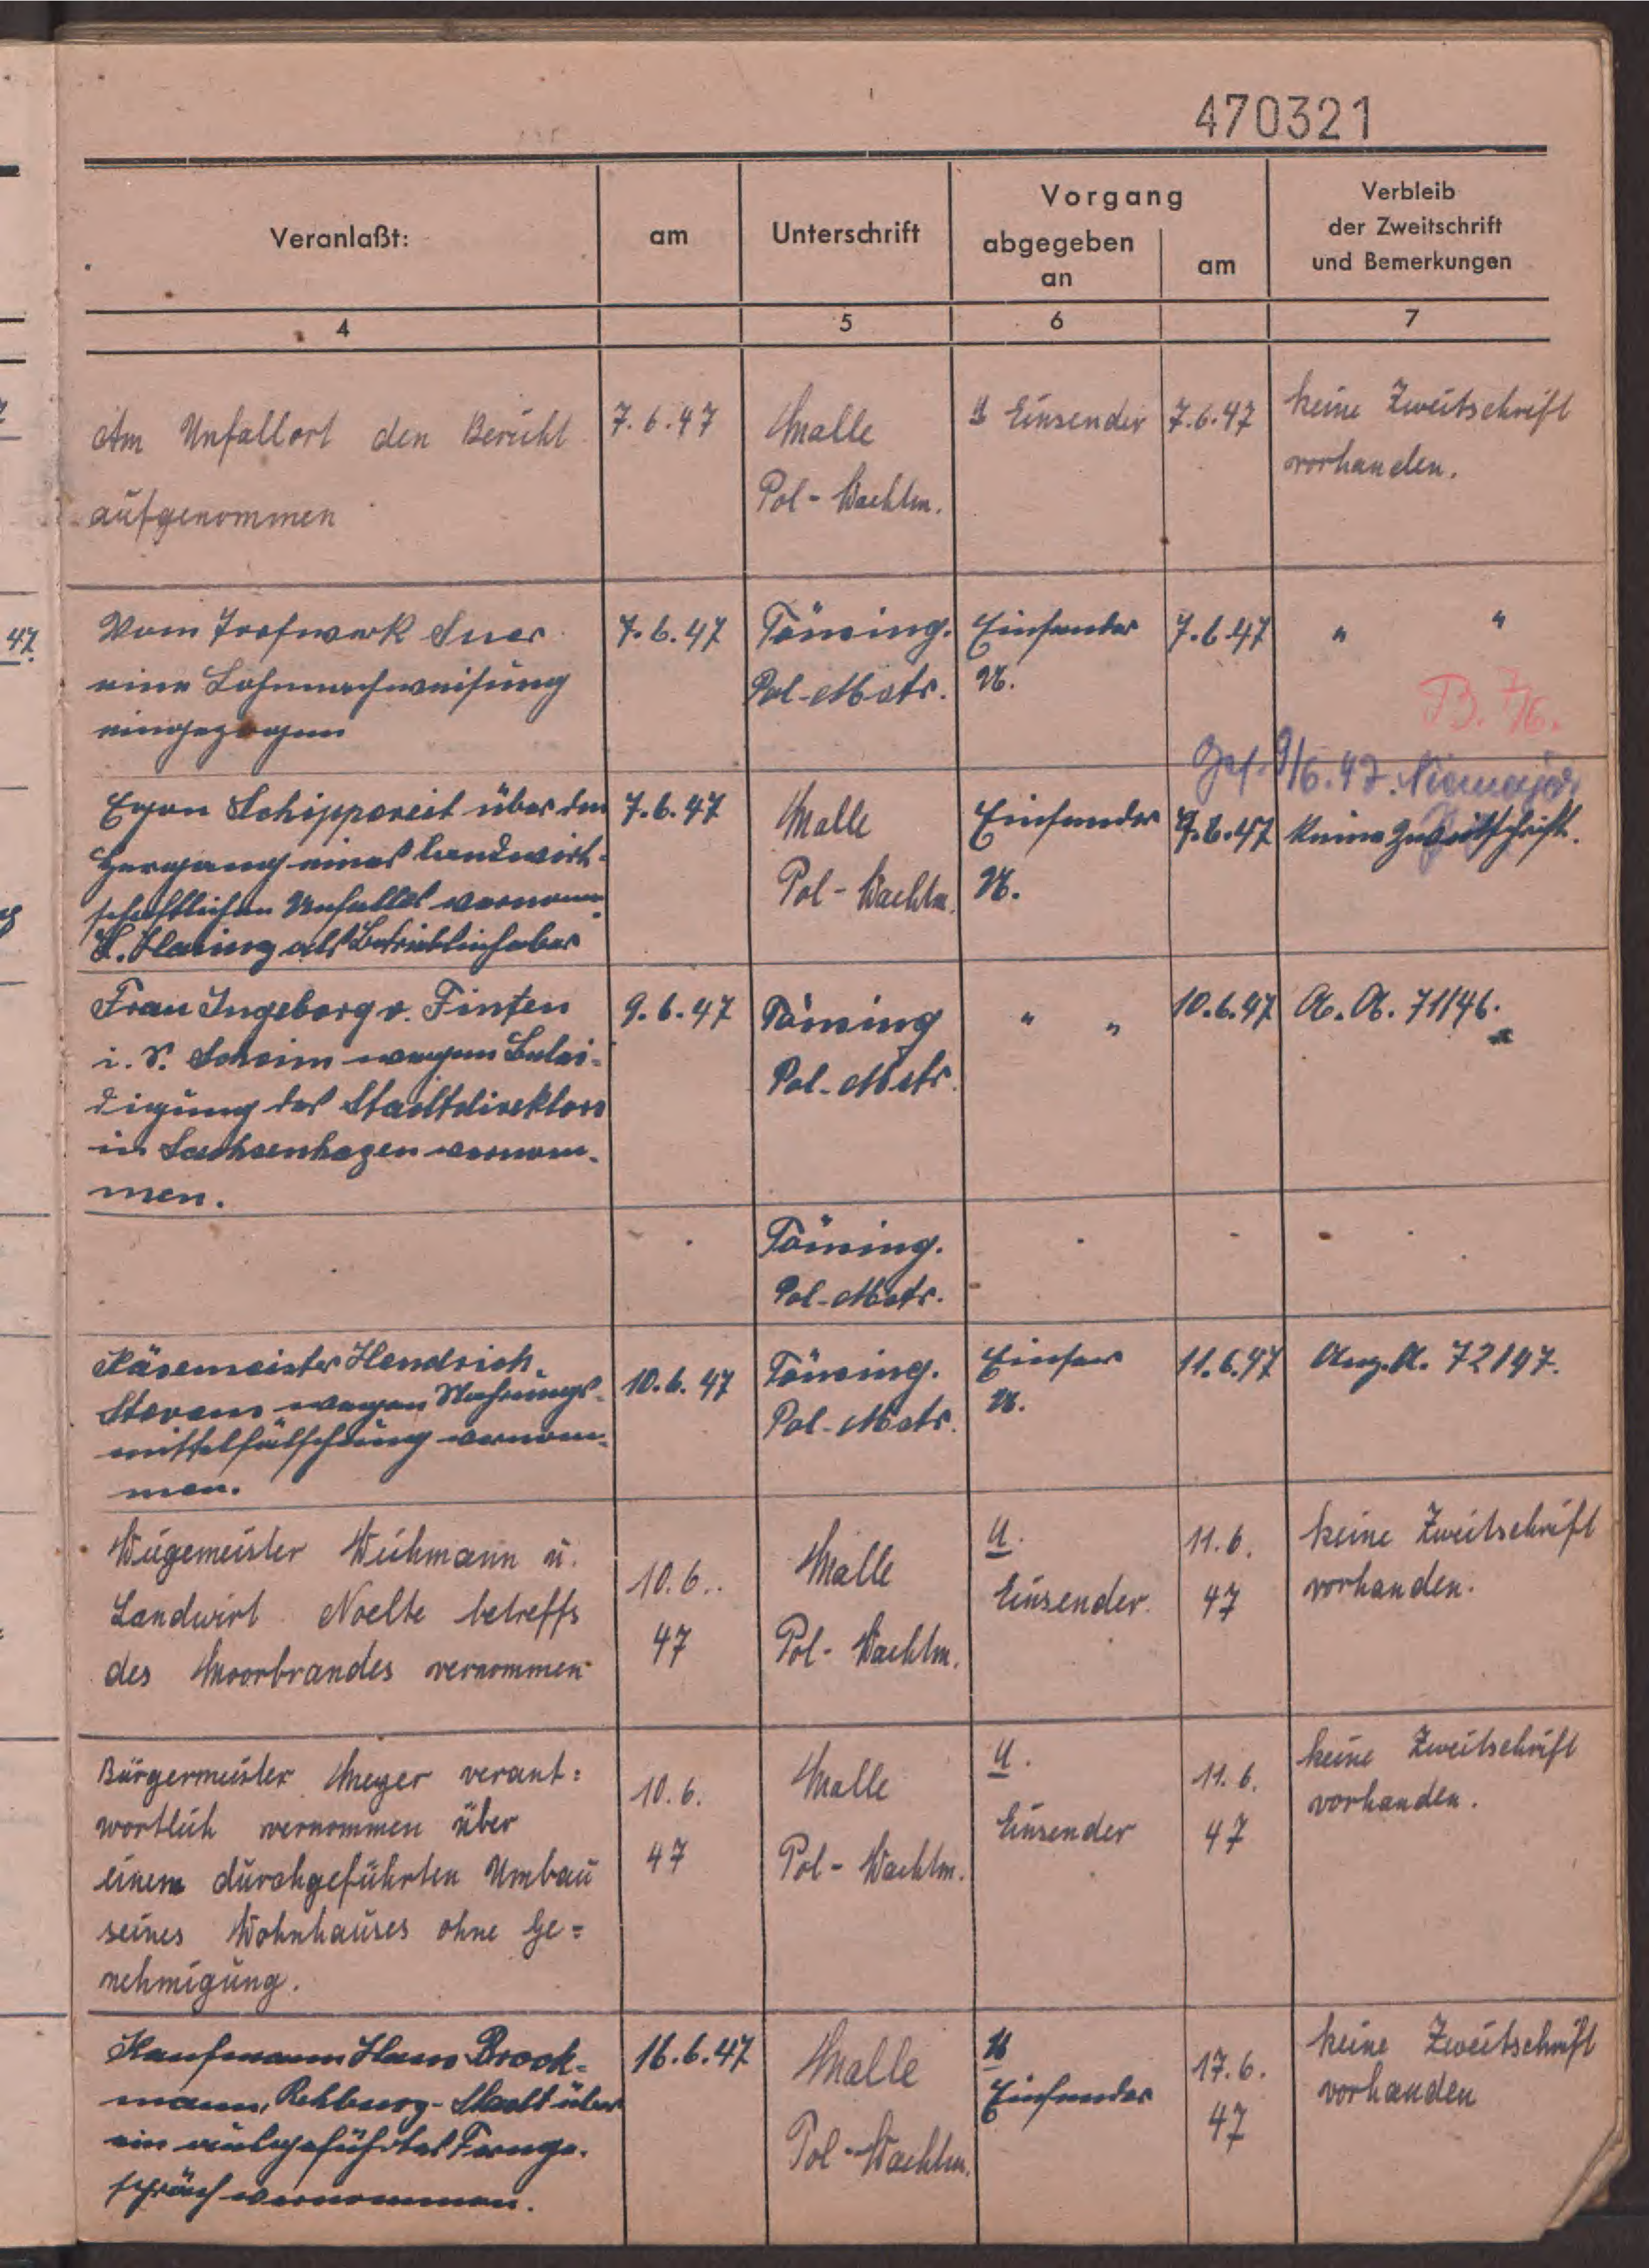 470321
Veranlaßt:
am
Unterschrift
Vorgang
abgegeben
an
am
Verbleib
der Zweitschrift
und Bemerkungen
4
5
6
7
Am Unfallort den Bericht
aufgenommen
7.6.47
Malle
Pol-Wachtm.
U Einsender
7.6.47
keine Zweitschrift
vorhanden.
47.
Vom Torfwerk
eine Lohnnachweisung
eingezogen
7.6.47
Töming.
Pol-Mstr.
Einsender
U.
7.6.47
" "
B. 7/6.
Ges. 9/6.47.
Egon Schippereit über den
Hergang eines landwirt-
schaftlichen Unfalles vernom.
H. Haring als Betriebsinhaber
7.6.47
Malle
Pol-Wachtm.
Einsender
U.
9.6.47
Keine Zweitschrift.
Frau Ingeborg v. Finten
i. V. wegen Belei-
digung des Stadtdirektors
in Sachsenhagen vernom-
men.
9.6.47
Töming
Pol-Mstr.
" "
10.6.47
A. A. 71/46.
Töming.
Pol-Mstr.
Käsemeister Hendrich
Stevens wegen Nahrungs-
mittelfälschung vernom-
men.
10.6.47
Töming.
Pol-Mstr.
U.
11.6.47
Anz.A. 72/47.
Wiegemeister Weihmann u.
Landwirt Noelte betreffs
des Moorbrandes vernommen
10.6.
47
Malle
Pol-Wachtm.
U.
Einsender.
11.6.
47
keine Zweitschrift
vorhanden.
Bürgermeister Meyer verant=
wortlich vernommen über
einem durchgeführten Umbau
seines Wohnhauses ohne Ge=
nehmigung.
10.6.
47
Malle
Pol-Wachtm.
U.
Einsender
11.6.
47
keine Zweitschrift
vorhanden.
Kaufmann Hans Brook-
mann, Rehburg-Stadt über
ein ausgeführtes Fernge-
spräch vernommen.
16.6.47
Malle
Pol-Wachtm.
U
Einsender
17.6.
47
keine Zweitschrift
vorhanden